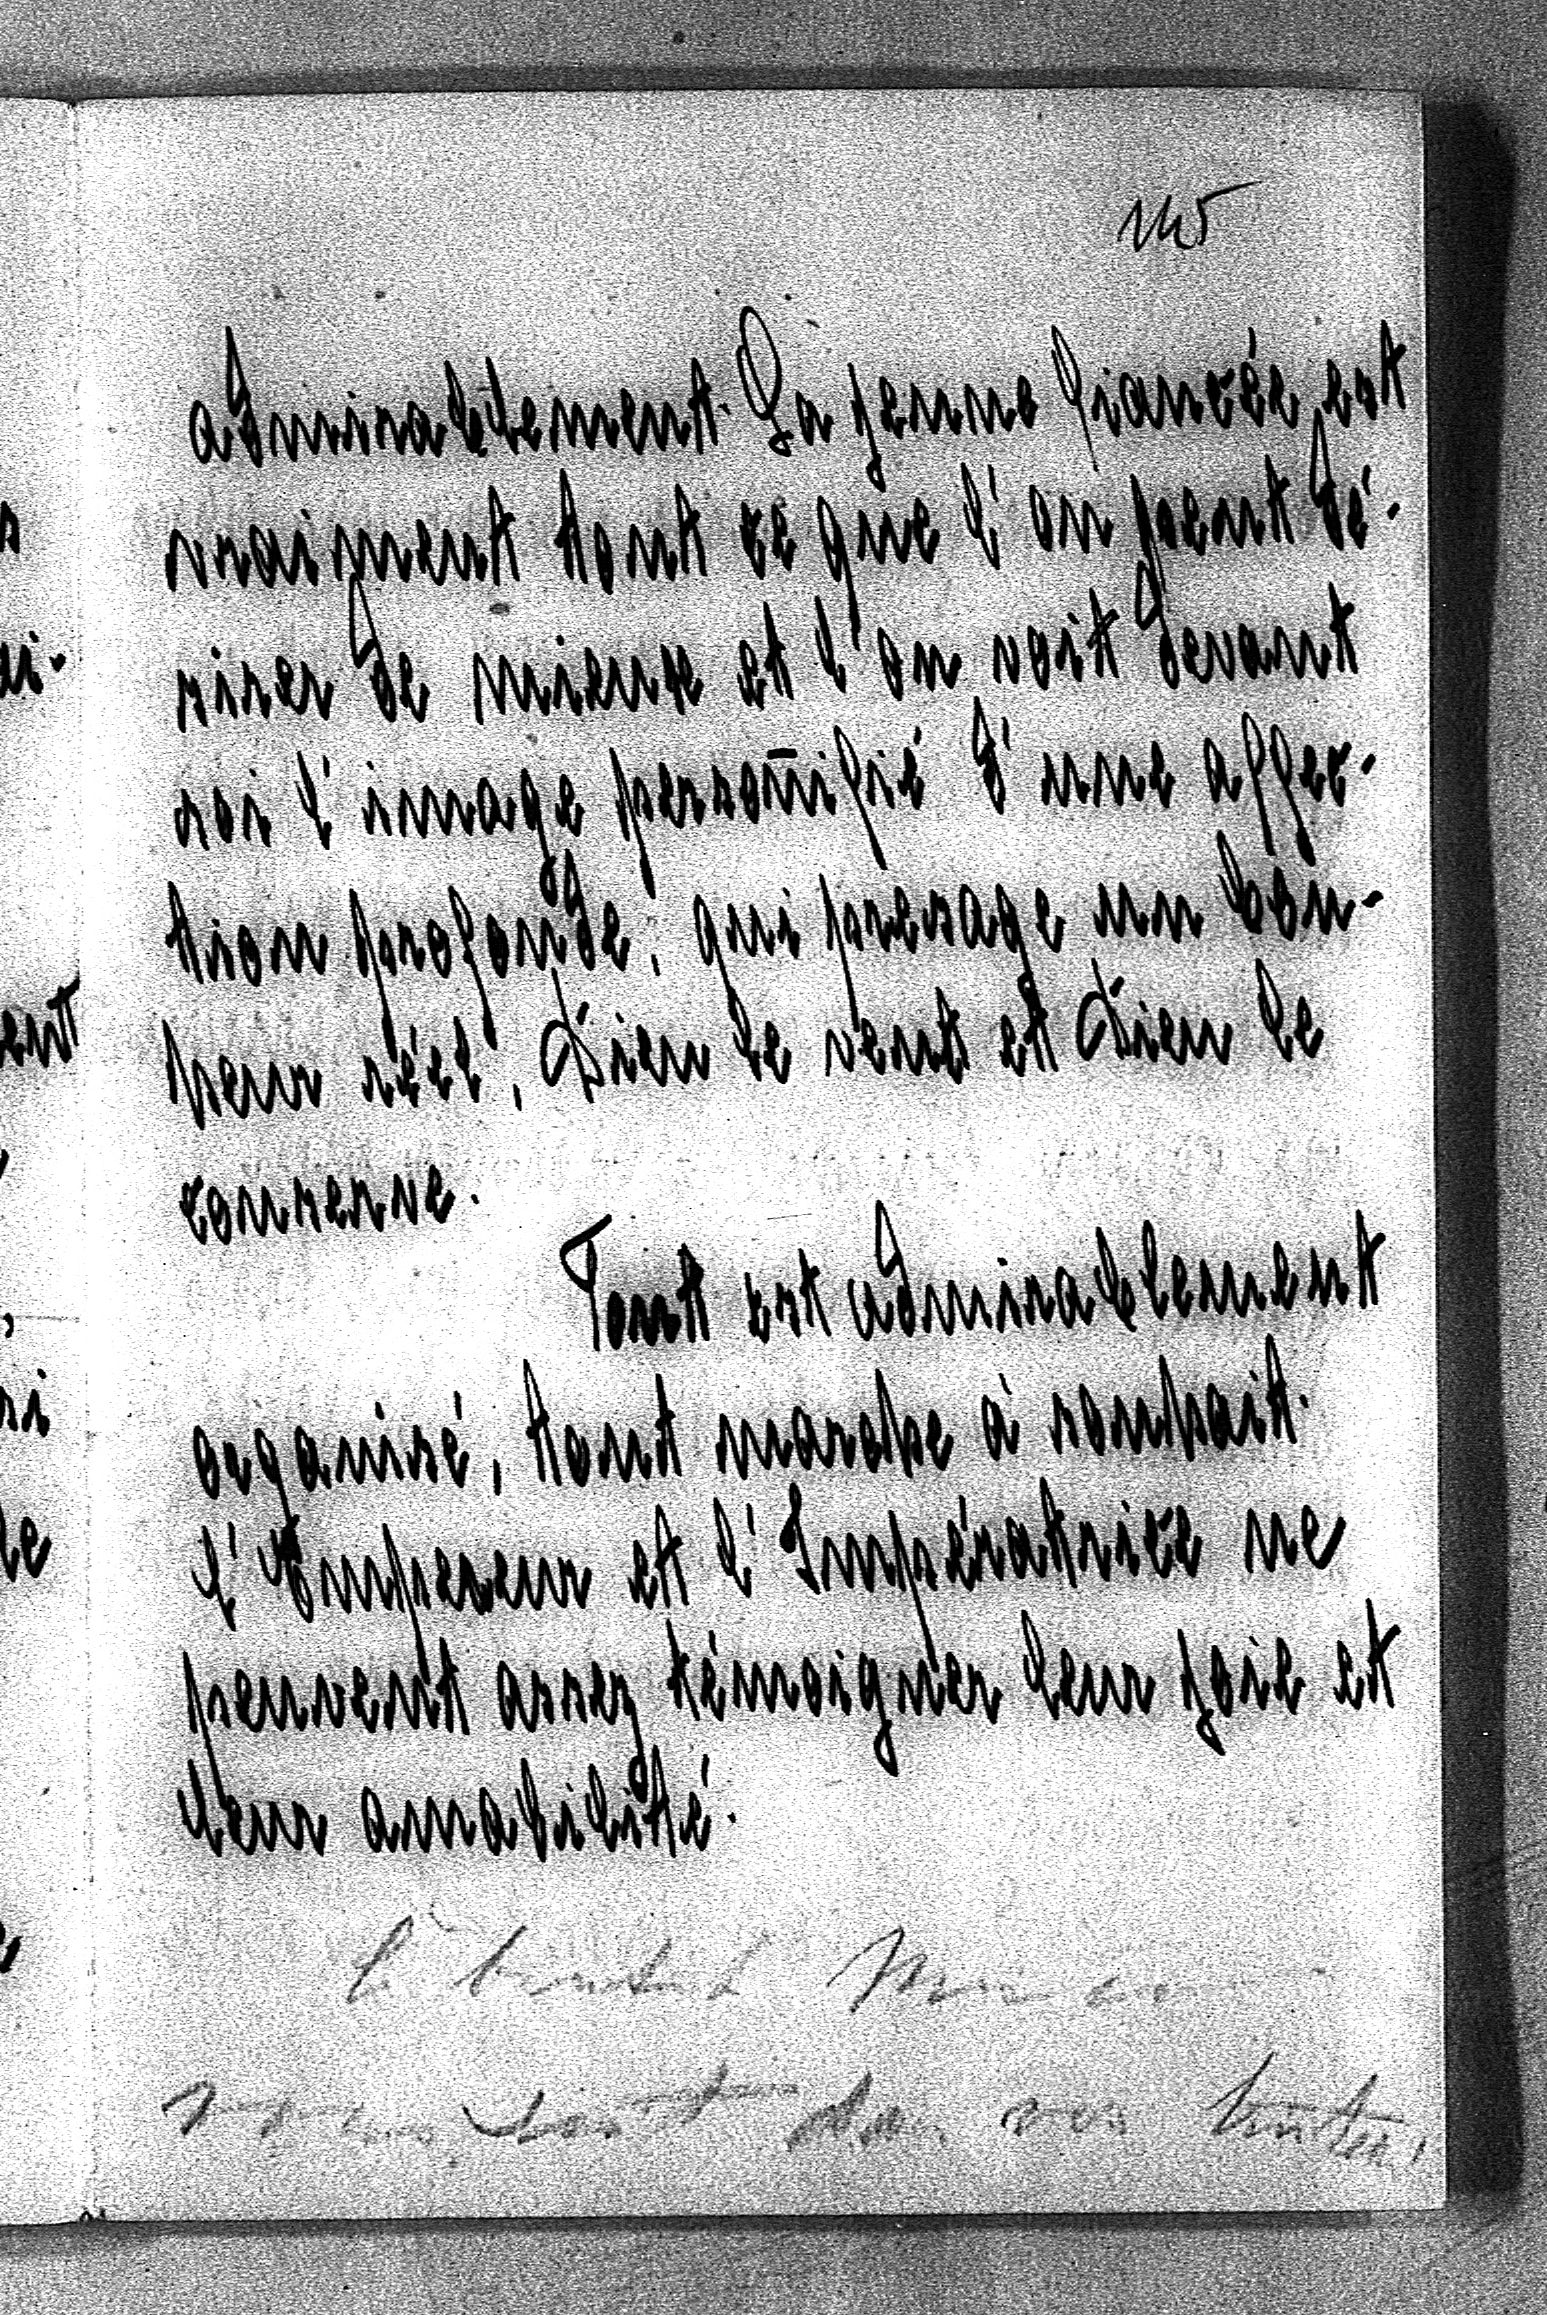 145
admirablement. La jeune fiancée est
vraiment tout ce que l'on peut dé-
sirer de mieux et l'on voit devant
soi l'image personifié d'une affec-
tion profonde, qui presage un bon-
heur réel, Dieu le veut et Dieu le
conserve.
Tout est admirablement
organisé, tout marche à souhait.
L'Empereur et l'Impératrice ne
peuvent assez témoigner leur joie et
leur amabilité.